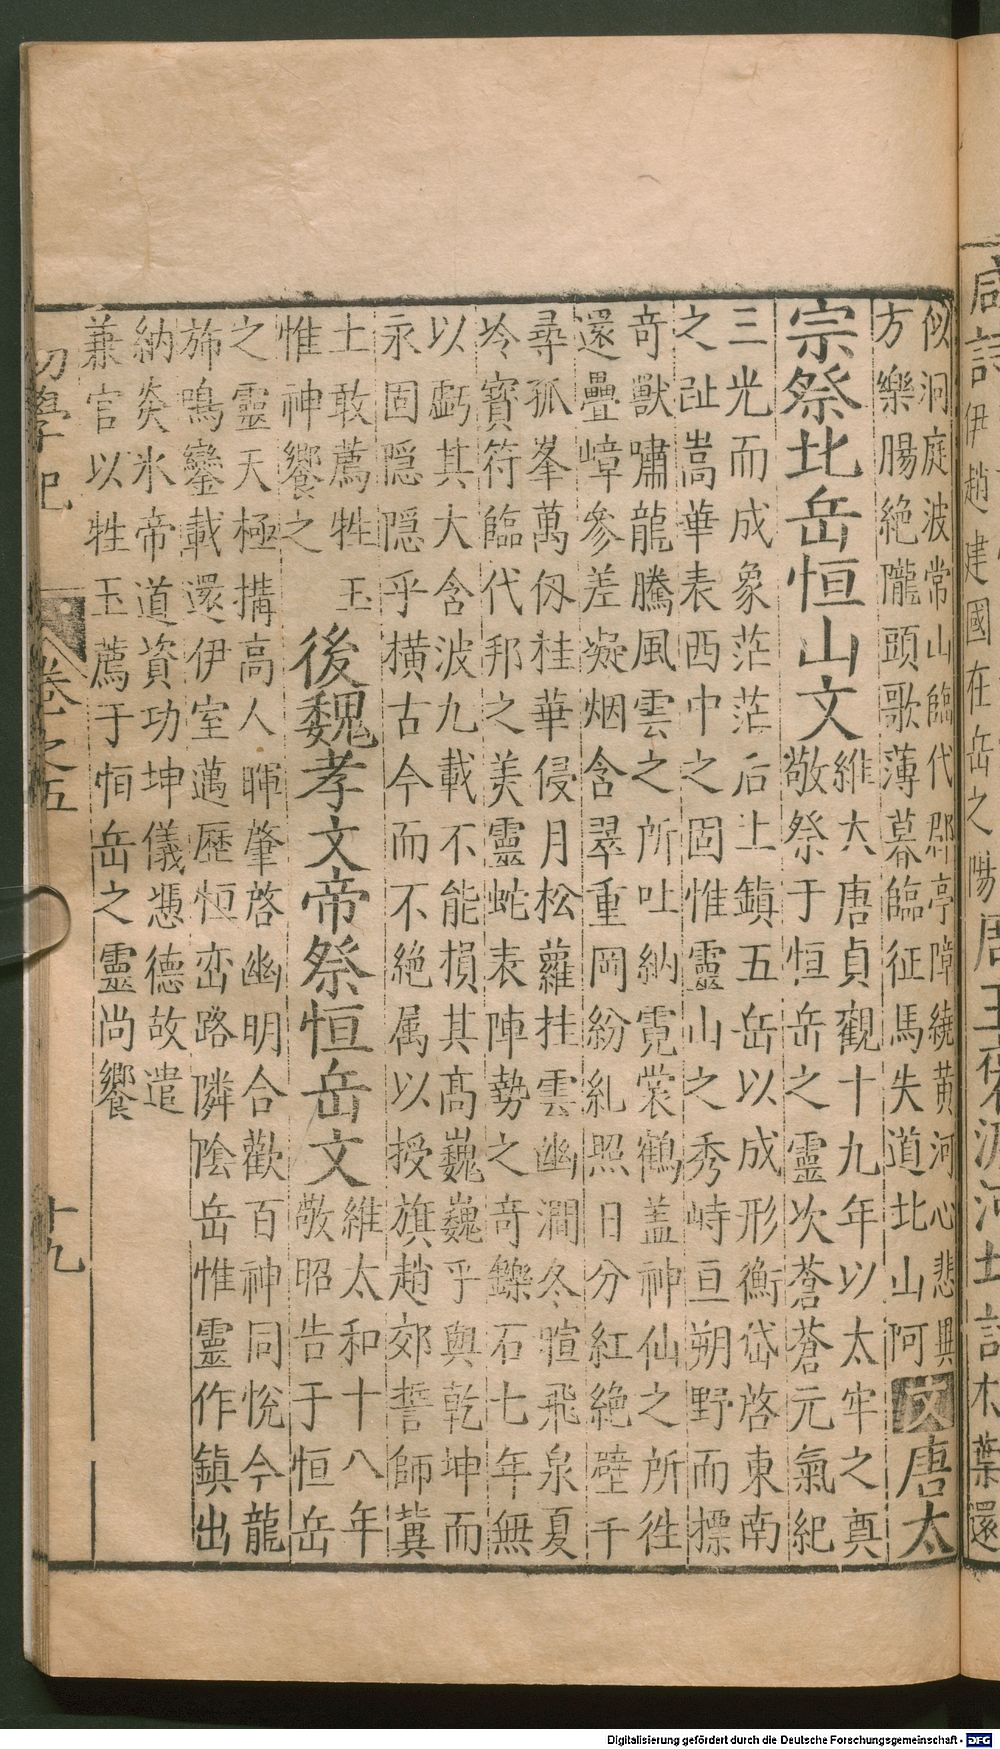 后詩伊趙建國在岳之陽周王褒渡河北詩木葉還
似洞庭波常山臨代郡亭障繞黃河心悲異
方樂腸絶隴頭歌薄暮臨征馬失道北山阿文唐太
宗祭北岳恒山文維大唐貞觀十九年以太牢之奠
敬祭于恒岳之靈次蒼蒼元氣紀
三光而成象茫茫后土鎮五岳以成形衡岱啓東南
之趾嵩華表西中之固惟靈山之秀峙亘朔野而摽
奇獸嘯龍騰風雲之所吐納霓裳鶴蓋神仙之所徃
還疊嶂參差凝烟含翠重岡紛糺照日分紅絶壁千
尋孤峯萬仭桂華侵月松蘿挂雲幽澗冬暄飛泉夏
冷寳符臨代邦之美靈蛇表陣勢之竒鑠石七年無
以虧其大含波九載不能損其髙巍巍乎與乾坤而
永固隱隱乎横古今而不絶属以授旗趙郊誓師冀
土敢薦牲玉
惟神饗之
後魏孝文帝祭恒岳文維太和十八年
敬昭告于恒岳
之靈天極搆高人暉肇啓幽明合歡百神同恱今龍
斾鳴鑾載還伊室邁歷恒峦路隣陰岳惟靈作鎮出
納炎氷帝道資功坤儀慿德故遣
兼官以牲玉薦于恒岳之靈尚饗
初學記 卷之五 十九
Digitalisierung gefördert durch die Deutsche Forschungsgemeinschaft - DFG